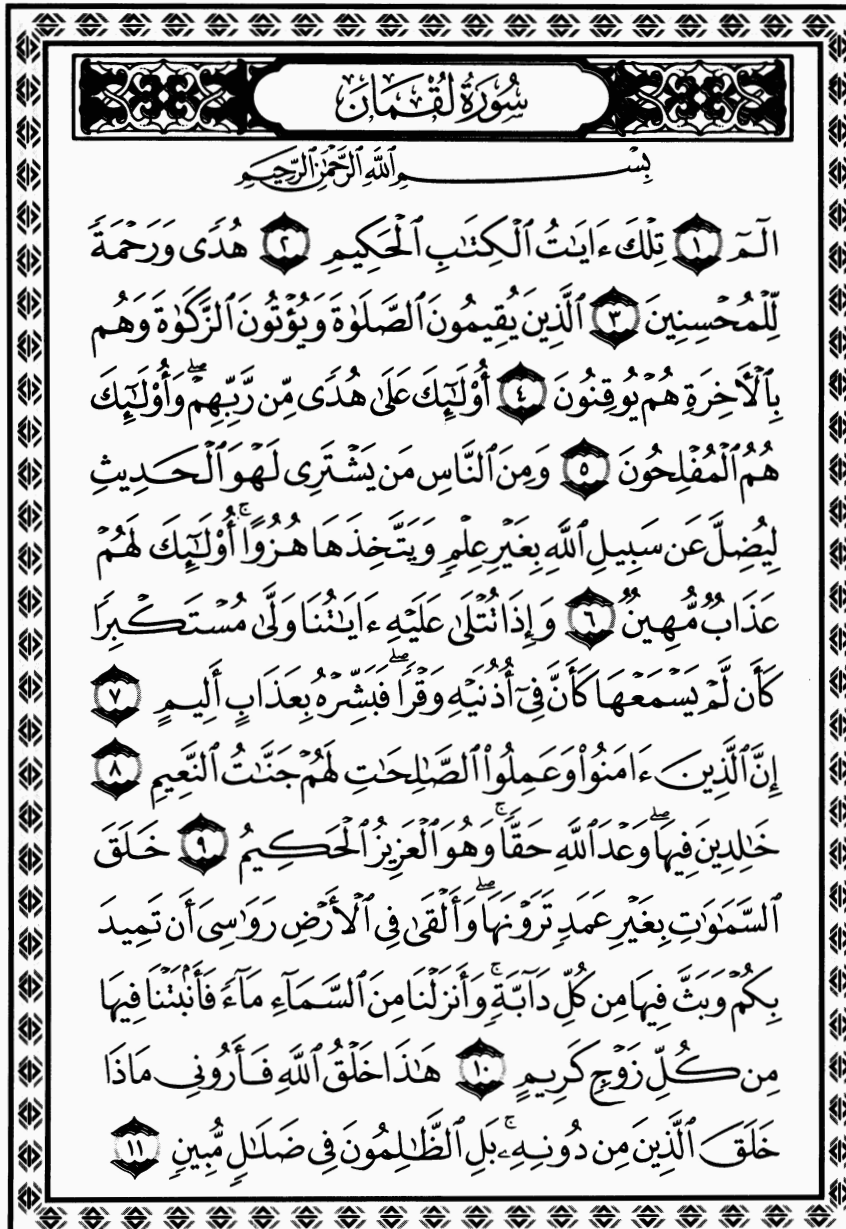 سُورَةُ لُقْمَانَ
بِسْمِ ٱللَّهِ ٱلرَّحْمَٰنِ ٱلرَّحِيمِ
الٓمٓ ١ تِلْكَ ءَايَٰتُ ٱلْكِتَٰبِ ٱلْحَكِيمِ ٢ هُدًى وَرَحْمَةً
لِّلْمُحْسِنِينَ ٣ ٱلَّذِينَ يُقِيمُونَ ٱلصَّلَوٰةَ وَيُؤْتُونَ ٱلزَّكَوٰةَ وَهُم
بِٱلْءَاخِرَةِ هُمْ يُوقِنُونَ ٤ أُو۟لَٰٓئِكَ عَلَىٰ هُدًى مِّن رَّبِّهِمْ ۖ وَأُو۟لَٰٓئِكَ
هُمُ ٱلْمُفْلِحُونَ ٥ وَمِنَ ٱلنَّاسِ مَن يَشْتَرِى لَهْوَ ٱلْحَدِيثِ
لِيُضِلَّ عَن سَبِيلِ ٱللَّهِ بِغَيْرِ عِلْمٍ وَيَتَّخِذَهَا هُزُوًا ۚ أُو۟لَٰٓئِكَ لَهُمْ
عَذَابٌ مُّهِينٌ ٦ وَإِذَا تُتْلَىٰ عَلَيْهِ ءَايَٰتُنَا وَلَّىٰ مُسْتَكْبِرًا
كَأَن لَّمْ يَسْمَعْهَا كَأَنَّ فِىٓ أُذُنَيْهِ وَقْرًا ۖ فَبَشِّرْهُ بِعَذَابٍ أَلِيمٍ ٧
إِنَّ ٱلَّذِينَ ءَامَنُوا۟ وَعَمِلُوا۟ ٱلصَّٰلِحَٰتِ لَهُمْ جَنَّٰتُ ٱلنَّعِيمِ ٨
خَٰلِدِينَ فِيهَا ۖ وَعْدَ ٱللَّهِ حَقًّا ۚ وَهُوَ ٱلْعَزِيزُ ٱلْحَكِيمُ ٩ خَلَقَ
ٱلسَّمَٰوَٰتِ بِغَيْرِ عَمَدٍ تَرَوْنَهَا ۖ وَأَلْقَىٰ فِى ٱلْأَرْضِ رَوَٰسِىَ أَن تَمِيدَ
بِكُمْ وَبَثَّ فِيهَا مِن كُلِّ دَآبَّةٍ ۚ وَأَنزَلْنَا مِنَ ٱلسَّمَآءِ مَآءً فَأَنۢبَتْنَا فِيهَا
مِن كُلِّ زَوْجٍ كَرِيمٍ ١٠ هَٰذَا خَلْقُ ٱللَّهِ فَأَرُونِى مَاذَا
خَلَقَ ٱلَّذِينَ مِن دُونِهِۦ ۚ بَلِ ٱلظَّٰلِمُونَ فِى ضَلَٰلٍ مُّبِينٍ ١١